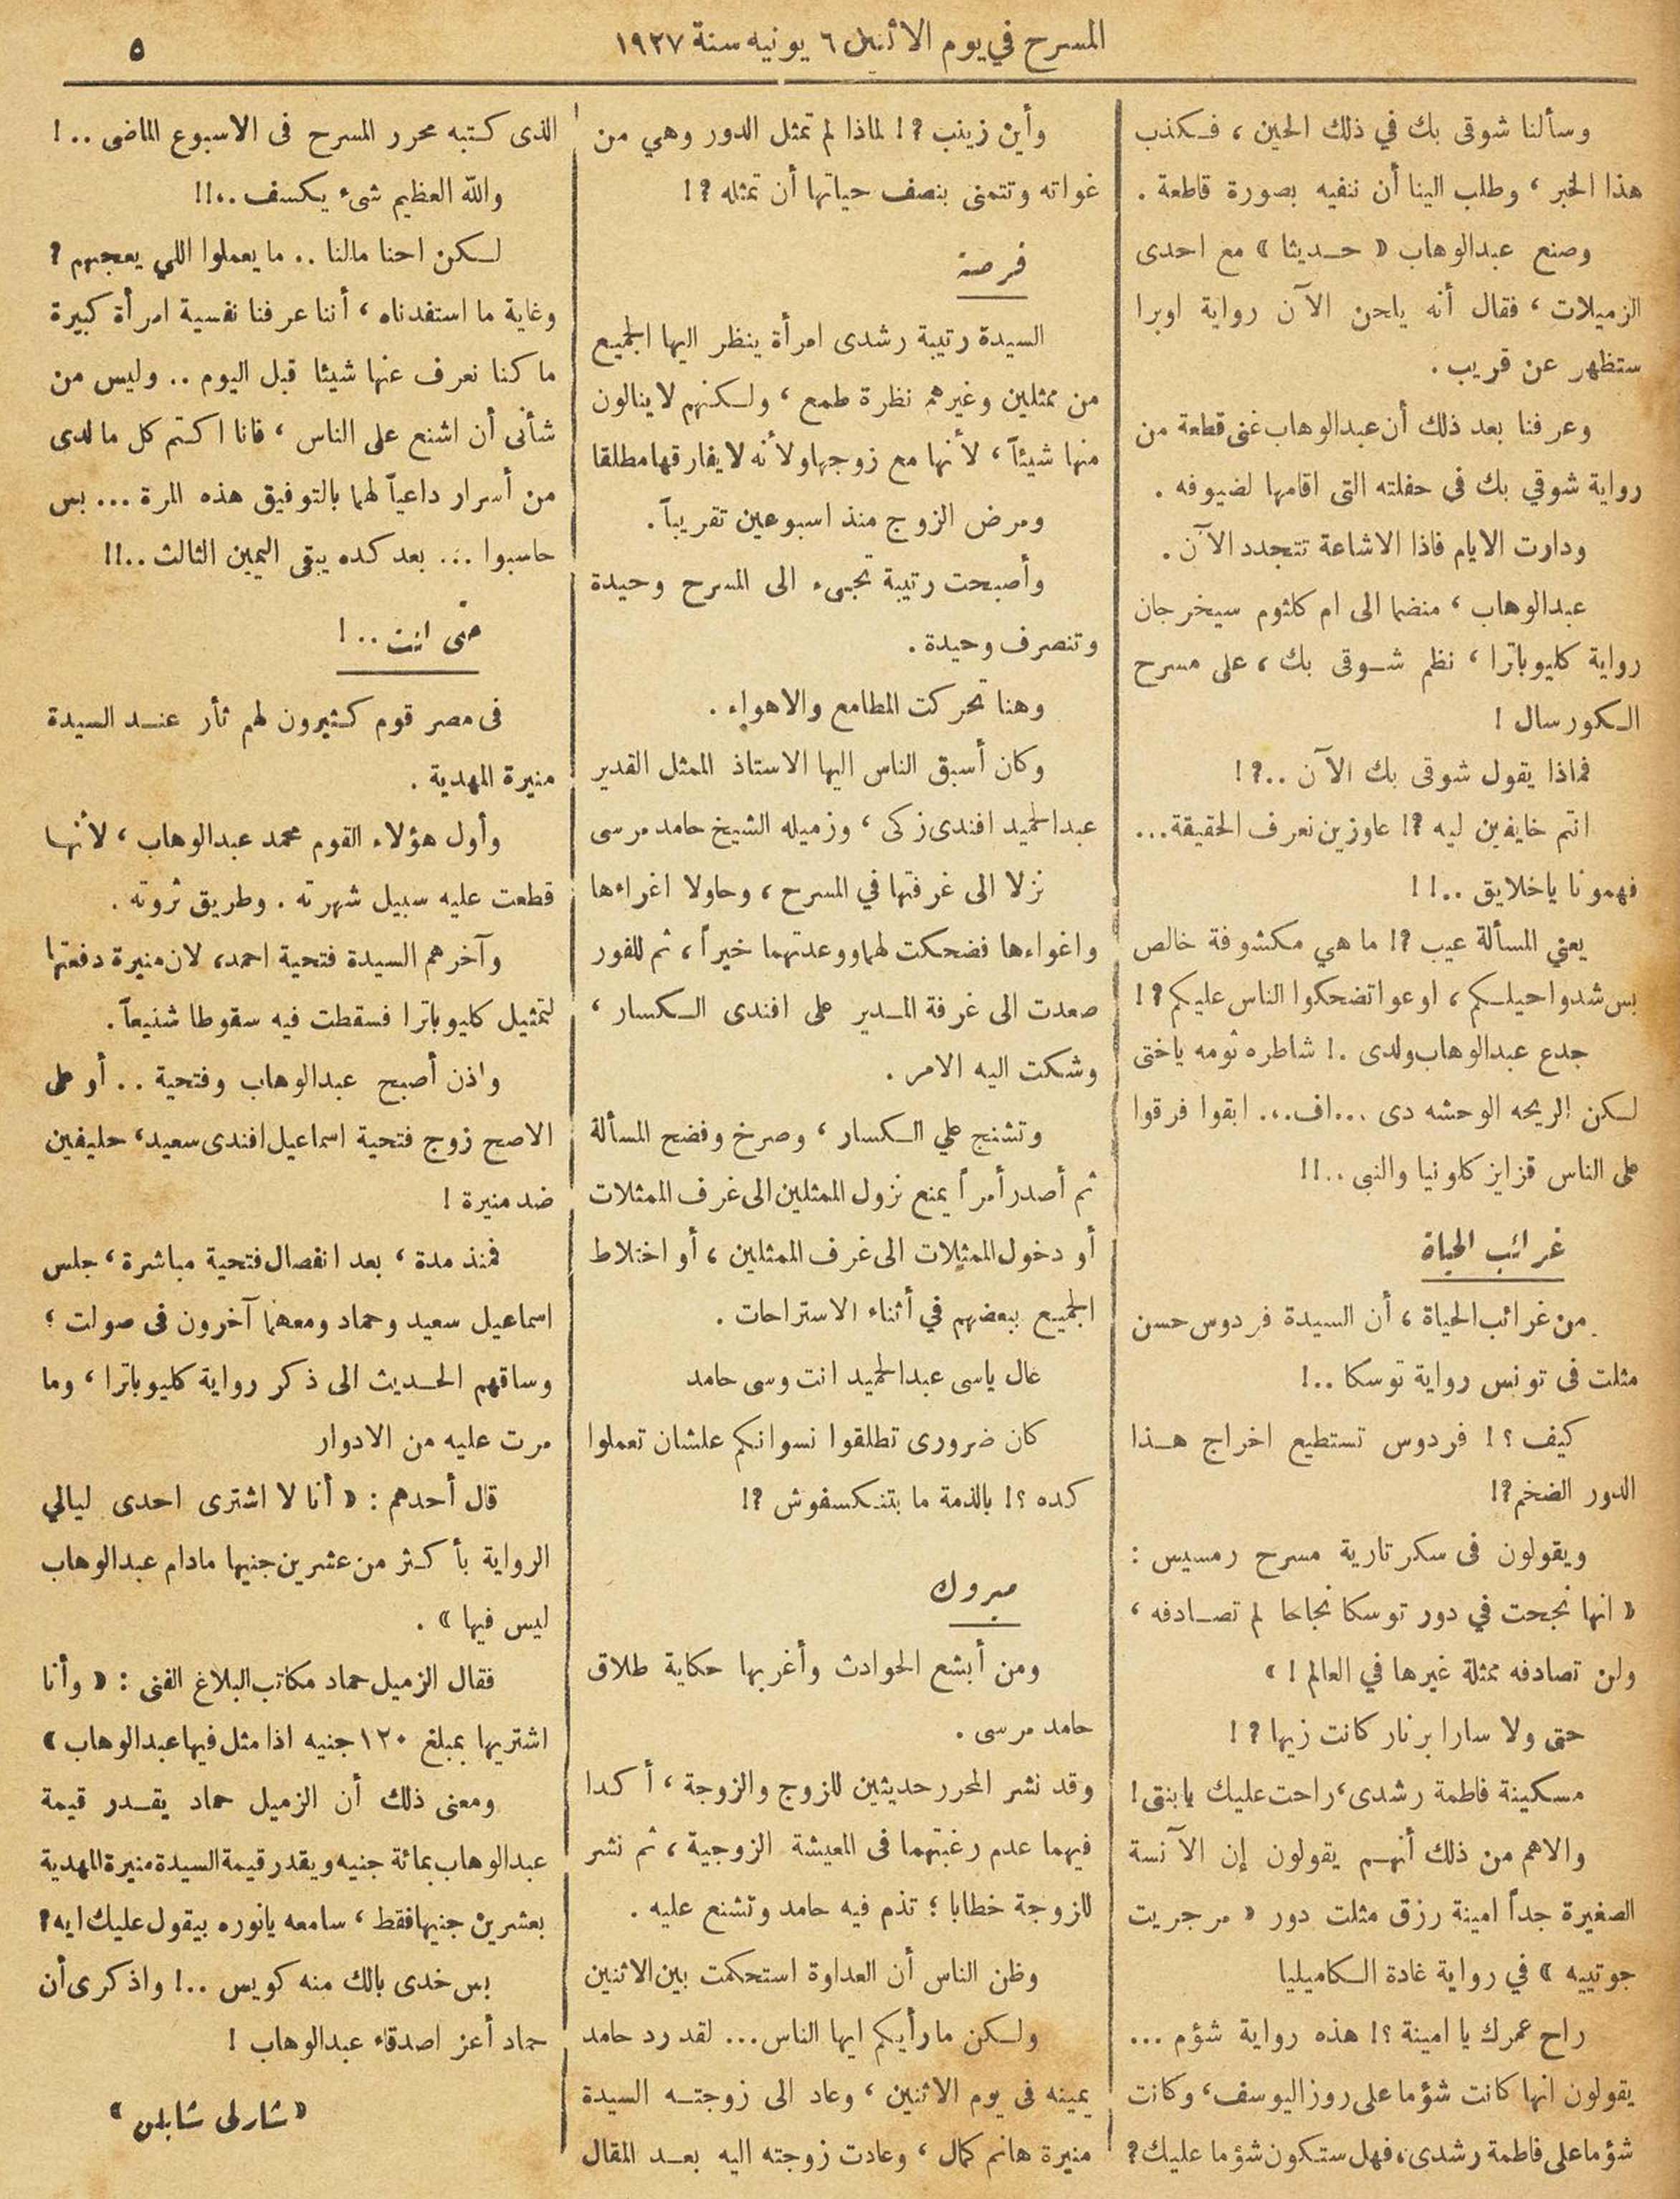 المسرح في يوم الاثنين ٦ يونيه سنة ١٩٢٧
٥
وسألنا شوقى بك في ذلك الحين ، فكذب
هذا الخبر ، وطلب الينا أن ننفيه بصورة قاطعة .
وصنع عبدالوهاب « حديثا » مع احدى
الزميلات ، فقال أنه يلحن الآن رواية اوبرا
ستظهر عن قريب .
وعرفنا بعد ذلك أن عبدالوهاب غنى قطعة من
رواية شوقي بك فى حفلته التى اقامها لضيوفه .
ودارت الايام فاذا الاشاعة تتجدد الآن .
عبدالوهاب ، منضما الى ام كلثوم سيخرجان
رواية كليوباترا ، نظم شوقى بك ، على مسرح
الكورسال !
فماذا يقول شوقى بك الآن ..؟!
انتم خايفين ليه ؟! عاوزين نعرف الحقيقة...
فهمونا ياخلايق ..!!
يعني المسألة عيب ؟! ما هي مكشوفة خالص
بس شدوا حيلكم ، اوعوا تضحكوا الناس عليكم ؟!
جدع عبدالوهاب ولدى .! شاطره ثومه ياختى
لكن الريحه الوحشه دى ...اف... ابقوا فرقوا
على الناس قزايز كلونيا والنبى ..!!
غرائب الحياة
من غرائب الحياة ، أن السيدة فردوس حسن
مثلت فى تونس رواية توسكا ..!
كيف ؟! فردوس تستطيع اخراج هذا
الدور الضخم ؟!
ويقولون فى سكرتارية مسرح رمسيس :
« انها نجحت في دور توسكا نجاحا لم تصادفه ،
ولن تصادفه ممثلة غيرها في العالم ! »
حتى ولا سارا برنار كانت زيها ؟!
مسكينة فاطمة رشدى ، راحت عليك يابنتى !
والاهم من ذلك أنهم يقولون إن الآنسة
الصغيرة جداً امينة رزق مثلت دور « مرجريت
جوتييه » في رواية غادة الكاميليا
راح عمرك يا امينة ؟! هذه رواية شؤم ...
يقولون انها كانت شؤما على روز اليوسف ، وكانت
شؤما على فاطمة رشدى ، فهل ستكون شؤما عليك ؟
وأين زينب ؟! لماذا لم تمثل الدور وهي من
غواته وتتمنى بنصف حياتها أن تمثله ؟!
فرصة
السيدة رتيبة رشدى امرأة ينظر اليها الجميع
من ممثلين وغيرهم نظرة طمع ، ولكنهم لاينالون
منها شيئاً ، لأنها مع زوجها ولأنه لا يفارقها مطلقا
ومرض الزوج منذ اسبوعين تقريباً .
وأصبحت رتيبة تجىء الى المسرح وحيدة
وتنصرف وحيدة .
وهنا تحركت المطامع والاهواء .
وكان أسبق الناس اليها الاستاذ الممثل القدير
عبدالحميد افندى زكى ، وزميله الشيخ حامد مرسى
نزلا الى غرفتها في المسرح ، وحاولا اغراءها
واغواءها فضحكت لهما ووعدتهما خيراً ، ثم للفور
صعدت الى غرفة المدير على افندى الكسار ،
وشكت اليه الامر .
وتشنج علي الكسار ، وصرخ وفضح المسألة
ثم أصدر أمراً يمنع نزول الممثلين الى غرف الممثلات
أو دخول الممثلات الى غرف الممثلين ، أو اختلاط
الجميع ببعضهم في أثناء الاستراحات .
عال ياسى عبدالحميد انت وسى حامد
كان ضرورى تطلقوا نسوانكم علشان تعملوا
كده ؟! بالذمة ما بتنكسفوش ؟!
مبروك
ومن أبشع الحوادث وأغربها حكاية طلاق
حامد مرسى .
وقد نشر المحرر حديثين للزوج والزوجة ، أكدا
فيهما عدم رغبتهما فى المعيشة الزوجية ، ثم نشر
للزوجة خطابا ؛ تذم فيه حامد وتشنع عليه .
وظن الناس أن العداوة استحكمت بين الاثنين
ولكن ما رأيكم ايها الناس... لقد رد حامد
يمينه فى يوم الاثنين ، وعاد الى زوجته السيدة
منيرة هانم كمال ، وعادت زوجته اليه بعد المقال
الذى كتبه محرر المسرح فى الاسبوع الماضى ..!
والله العظيم شىء يكسف ..!!
لكن احنا مالنا .. ما يعملوا اللي يعجبهم ؟
وغاية ما استفدناه ، أننا عرفنا نفسية امرأة كبيرة
ما كنا نعرف عنها شيئا قبل اليوم .. وليس من
شأنى أن اشنع على الناس ، فانا اكتم كل ما لدى
من أسرار داعياً لهما بالتوفيق هذه المرة ... بس
حاسبوا ... بعد كده يبقى اليمين الثالث ..!!
حتى انت ..!
فى مصر قوم كثيرون لهم ثأر عند السيدة
منيرة المهدية .
وأول هؤلاء القوم محمد عبدالوهاب ، لأنها
قطعت عليه سبيل شهرته . وطريق ثروته .
وآخرهم السيدة فتحية احمد ، لان منيرة دفعتها
لتمثيل كليوباترا فسقطت فيه سقوطا شنيعاً .
واذن أصبح عبدالوهاب وفتحية .. أو على
الاصح زوج فتحية اسماعيل افندى سعيد ، حليفين
ضد منيرة !
فمنذ مدة ، بعد انفصال فتحية مباشرة ، جلس
اسماعيل سعيد وحماد ومعهما آخرون فى صولت ؛
وساقهم الحديث الى ذكر رواية كليوباترا ، وما
مرت عليه من الادوار
قال أحدهم : « أنا لا اشترى احدى ليالي
الرواية بأكثر من عشرين جنيها مادام عبدالوهاب
ليس فيها » .
فقال الزميل حماد مكاتب البلاغ الفنى : « وأنا
اشتريها بمبلغ ١٢٠ جنيه اذا مثل فيها عبدالوهاب »
ومعنى ذلك أن الزميل حماد يقدر قيمة
عبدالوهاب بمائة جنيه ويقدر قيمة السيدة منيرة المهدية
بعشرين جنيها فقط ، سامعه يانوره بيقول عليك ايه ؟
بس خدى بالك منه كويس ..! واذكرى أن
حماد أعز اصدقاء عبدالوهاب !
« شارلى شابلن »